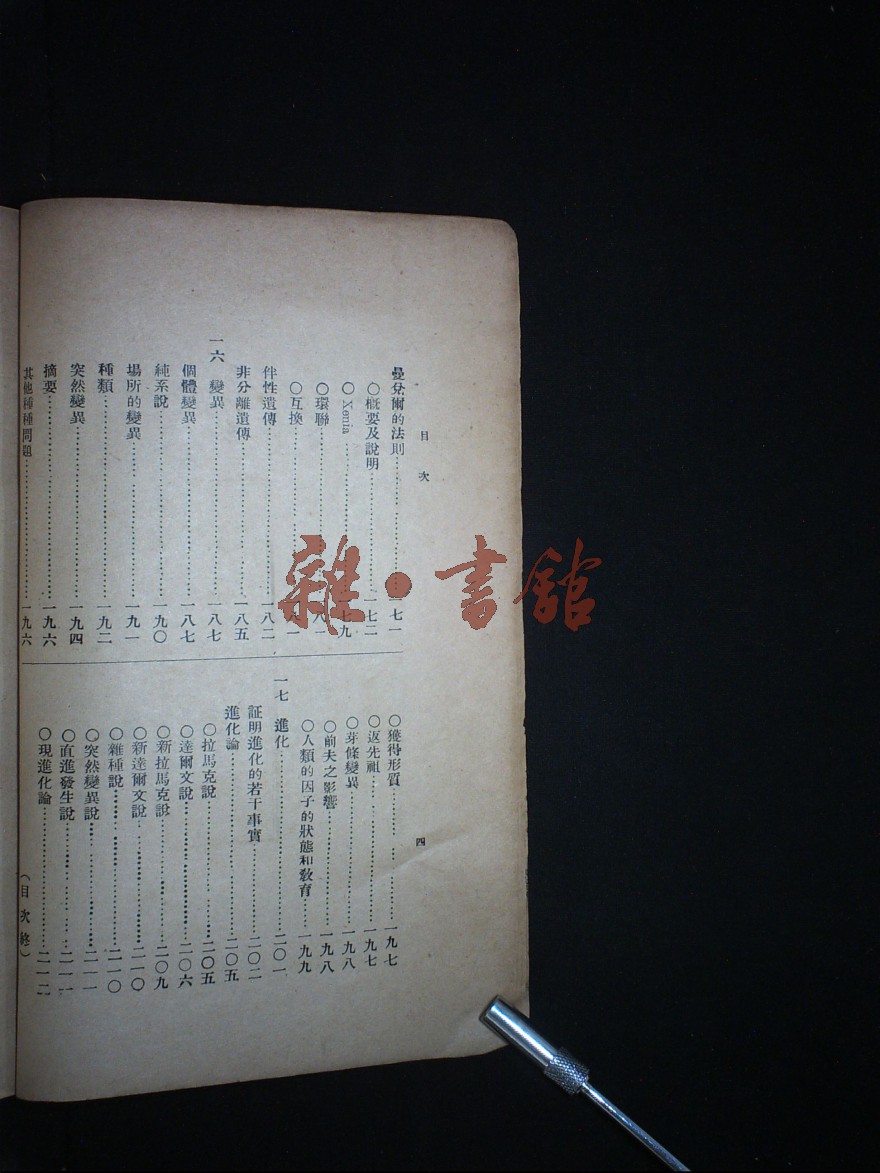 目 次
曼兌爾的法則…………一七一
○概要及說明…………一七二
○Xenia…………七九
○環聯…………
○互換…………
伴性遺傳…………一八二
非分離遺傳…………一八五
一六 變異…………一八七
個體變異…………一八七
純系說…………一九〇
場所的變異…………一九一
種類…………一九二
突然變異…………一九四
摘要…………一九六
其他種種問題…………一九六
○獲得形質…………一九七
○返先祖…………一九七
○芽條變異…………一九八
○前夫之影響…………一九八
○人類的因子的狀態和敎育…………一九九
一七 進化…………二〇一
証明進化的若干事實…………二〇二
進化論…………二〇五
○拉馬克說…………二〇五
○達爾文說…………二〇六
○新拉馬克說…………二〇九
○新達爾文說…………二一〇
○雜種說…………二一〇
○突然變異說…………二一一
○直進發生說…………二一一
○現進化論…………二一二
（目次終）
四
雜·書館